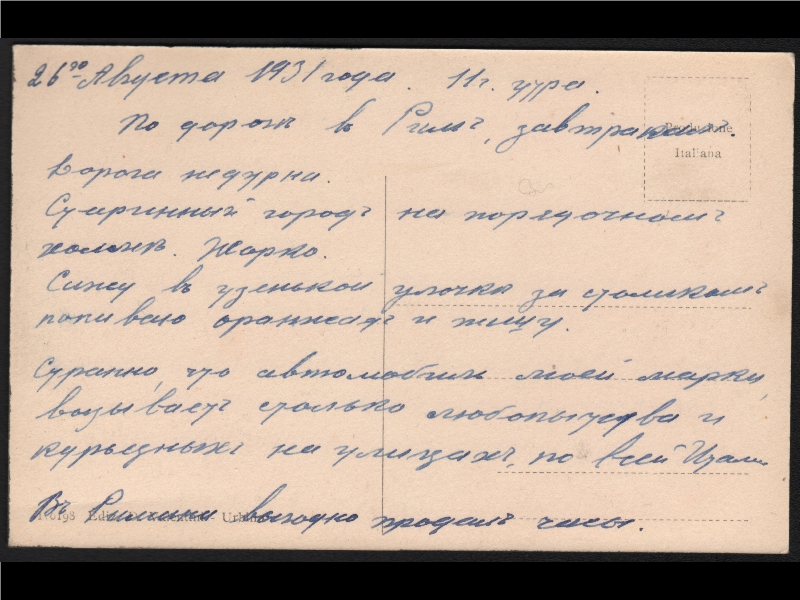 26го Августа 1931 года. 11ч. утра.
По дороге въ Римъ, завтракаемъ.
Produzione
Italiana
Дорога недурна.
Старинный городъ на порядочномъ
холмѣ. Жарко.
Сижу въ узенькой улочкѣ за столикомъ
попиваю оранжадъ и пишу.
Странно, что автомобиль моей марки
вызываетъ столько любопытства и
на улицахъ, по всей
Въ Римини выгодно продалъ часы.
Urbino